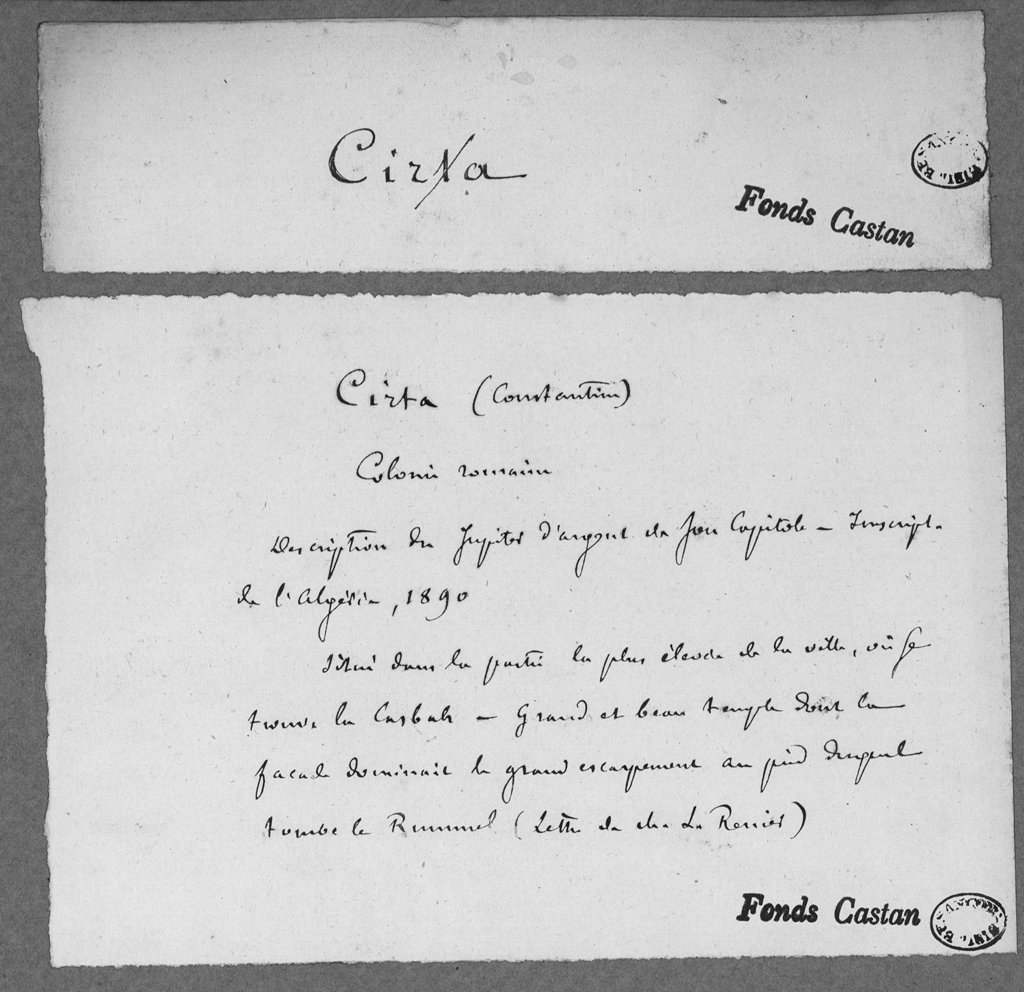 Cirta
Fonds Castan
Cirta (Constantine)
Colonie romaine
Description du Jupiter d'argent de son Capitole – Inscript.
de l'Algérie, 1890
Situé dans la partie la plus élevée de la ville, où se
trouve la Casbah – Grand et beau temple dont la
façade dominait le grand escarpement au pied duquel
tombe le Rummel (Lettre de Renier)
Fonds Castan